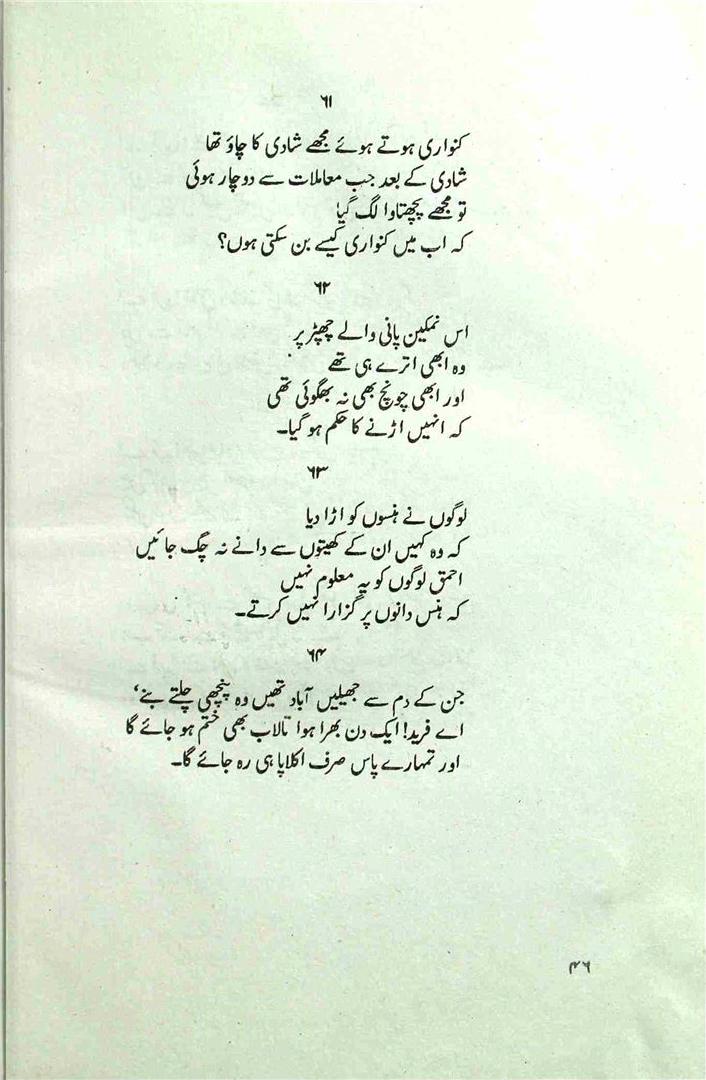 ۶۱
کنواری ہوتے ہوئے مجھے شادی کا چاؤ تھا
شادی کے بعد جب معاملات سے دوچار ہوئی
تو مجھے پچھتاوا لگ گیا
کہ اب میں کنواری کیسے بن سکتی ہوں؟
۶۲
اس نمکین پانی والے چھپڑ پر
وہ ابھی اترے ہی تھے
اور ابھی چونچ بھی نہ بھگوئی تھی
کہ انہیں اڑنے کا حکم ہو گیا۔
۶۳
لوگوں نے ہنسوں کو اڑا دیا
کہ وہ کہیں ان کے کھیتوں سے دانے نہ چگ جائیں
احمق لوگوں کو یہ معلوم نہیں
کہ ہنس دانوں پر گزارا نہیں کرتے۔
۶۴
جن کے دم سے جھیلیں آباد تھیں وہ پنچھی چلتے بنے‘
اے فرید! ایک دن بھرا ہوا تالاب بھی ختم ہو جائے گا
اور تمہارے پاس صرف اکلاپا ہی رہ جائے گا۔
۴۶